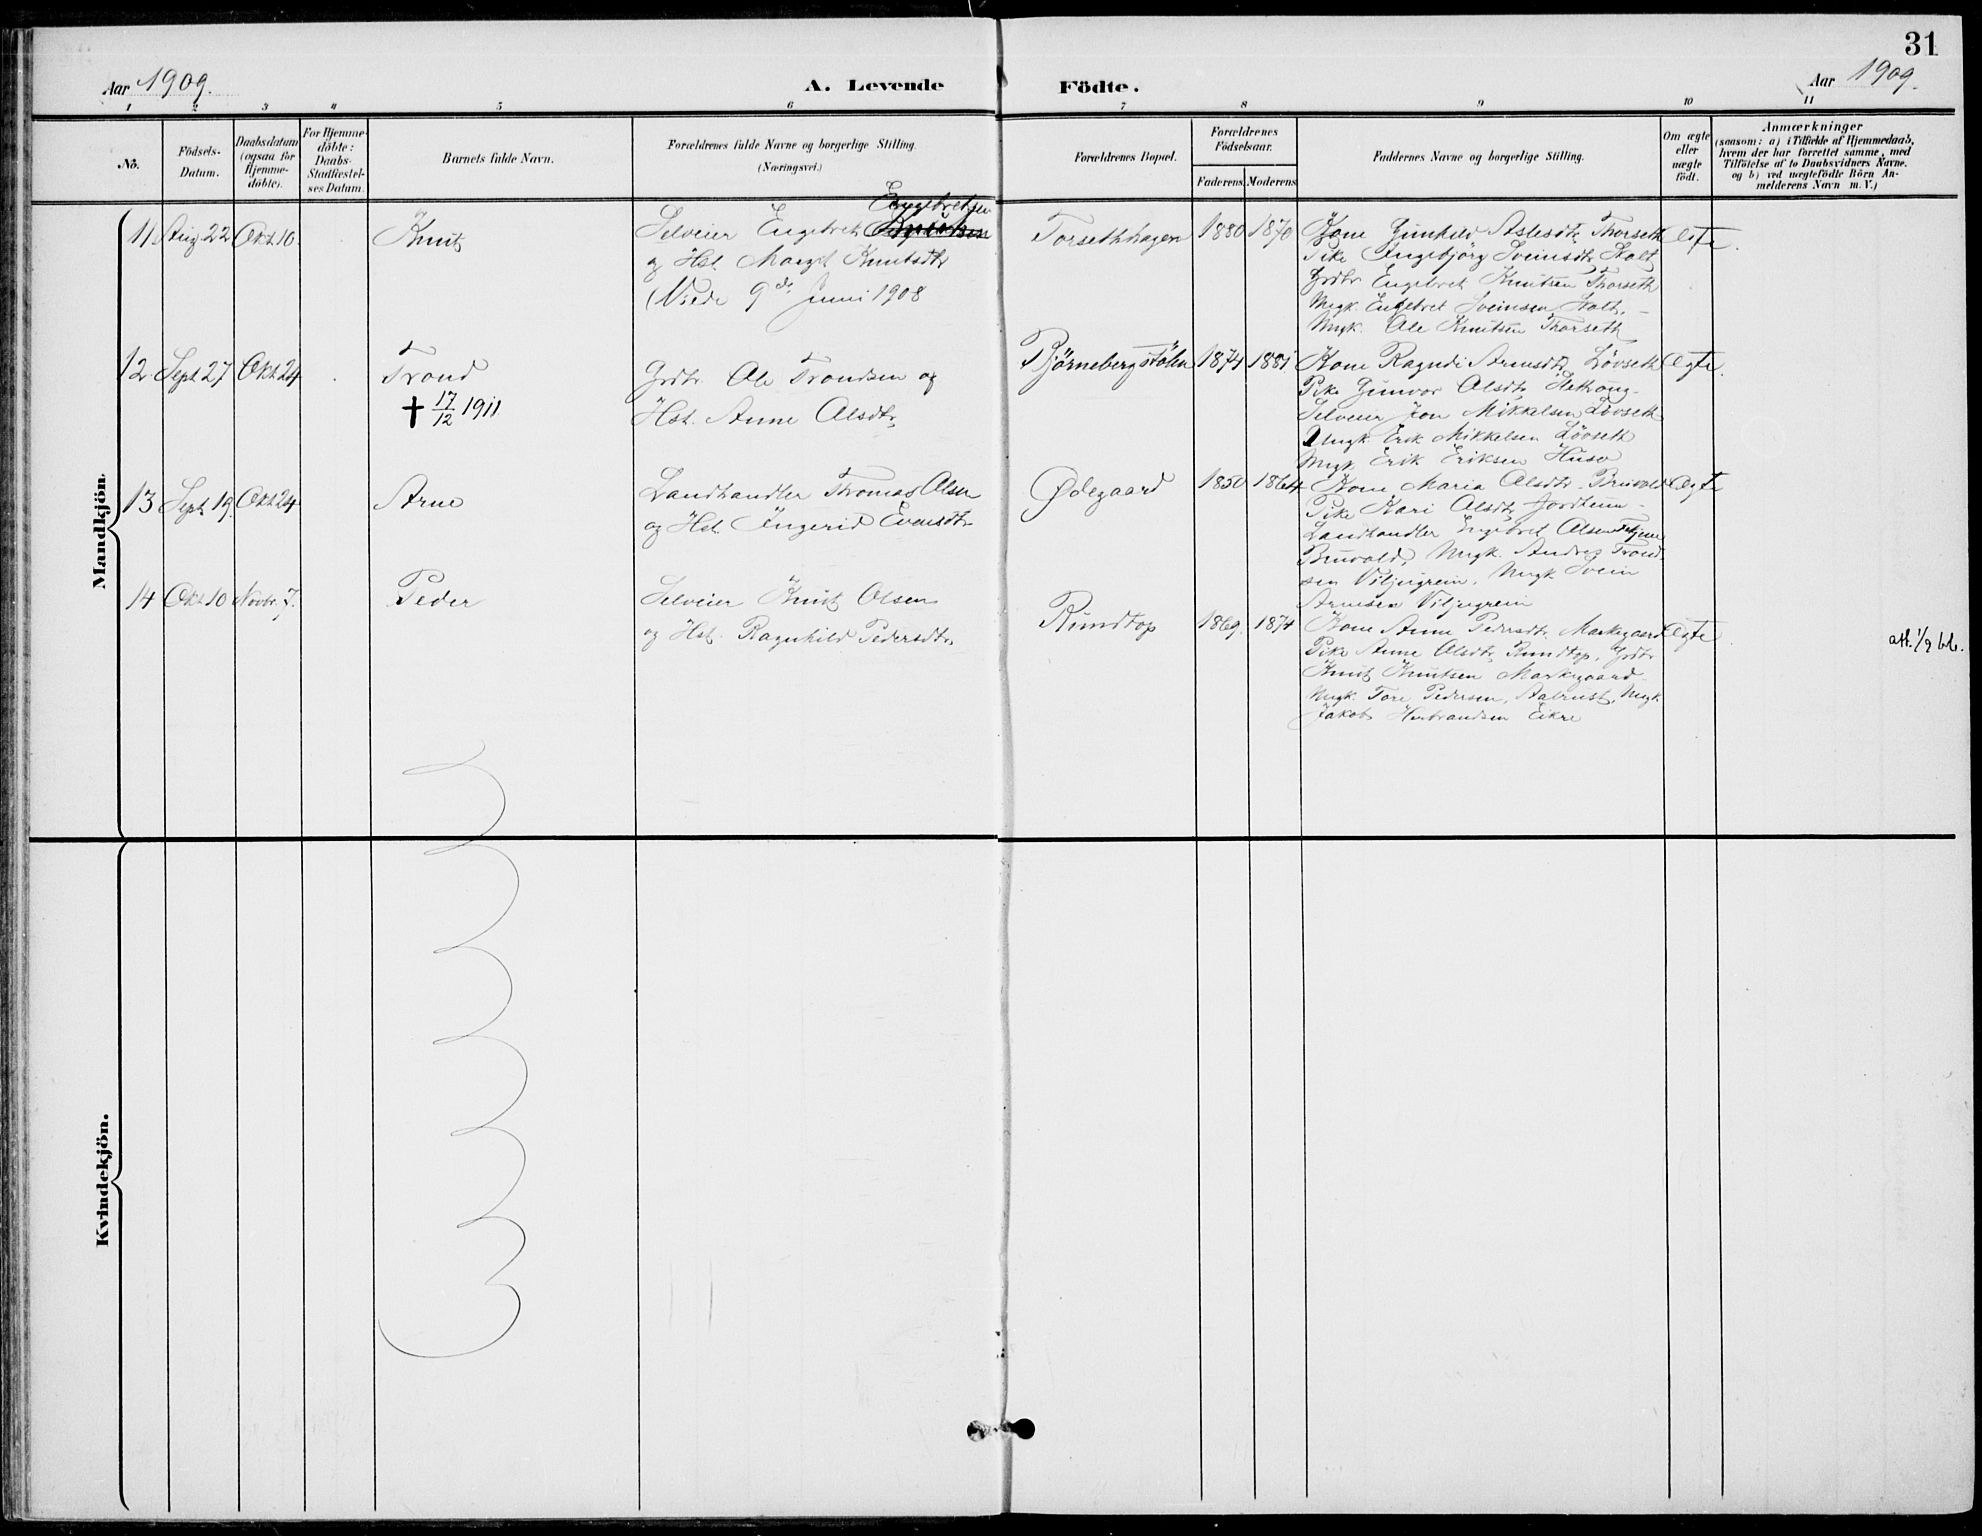 31
Aar 1909.
A. Levende
Födte.
Aar 1909.
1 2 3 4 5 6 7 8 9 10 11
No.
Födsels-
Datum.
Daabsdatum
(ogsaa for
Hjemme-
döbte).
For Hjemme-
döbte:
Daabs-
Stadfæstel-
ses Datum.
Barnets fulde Navn.
Forældrenes fulde Navne og borgerlige Stilling.
(Næringsvei.)
Forældrenes Bopæl.
Forældrenes
Födselsaar.
Faderens
Moderens
Faddernes Navne og borgerlige Stilling.
Om ægte
eller
uægte
födt.
Anmærkninger
(saasom: a) i Tilfælde af Hjemmedaab,
hvem der har forrettet samme, med
Tilföielse af to Daabsvidners Navne.
og b) ved uægtefödte Börn An-
melderens Navn m. V.)
Mandkjön.
11 Aug 22 Okt 10
Knut
Engebretsen
Selveier Engebret
og Hst. Margit Knutsdtr
(Viede 9de Juni 1908
Torsethhagen
1880 1870
Kone Gunhild Aslesdtr Thorseth
Pike Ingebjörg Sveinsdtr Holt
Grdbr Engebret Knutsen Thorseth
Ungk. Engebret Sveinsen Holt,
Ungk. Ole Knutsen Thorseth
Ægte.
12. Sept 27 Okt 24
Trond
† 17/12 1911
Grdbr. Ole Trondsen og
Hst. Anne Olsdtr
Björnebergstölen
1874 1881
Kone Ragndi Arnesdtr Lövseth
Pike Gunvor Olsdtr
Selveier Jon Mikkelsen Lövseth
Ungk. Erik Mikkelsen Lövseth
Ungk. Erik Eriksen Huso
Ægte.
13 Sept 19. Okt 24
Arne
Landhandler Thomas Olsen
og Hst. Ingerid Evensdtr
Ødegaard
1850 1864
Kone Maria Olsdtr Bruvold
Pike Kari Olsdtr Jordheim
Landhandler Engebret Olsen
Bruvold, Ungk. Andres Trond-
sen Viljugrein, Ungk Svein
Arnesen Viljugrein
Ægte
14 Okt 10 Novbr. 7.
Peder
Selveier Knut Olsen
og Hst. Ragnhild Pedersdtr.
Rundtop
1869. 1874
Kone Anne Pedersdtr. Markegaard
Pike Anne Olsdtr, Rundtop, Grdbr
Knut Knutsen Markegaard
Ungk. Tore Pedersen, Aabrust, Ungk.
Jakob Herbrandsen Eikre
Ægte
att. 1/9
Kvindekjön.